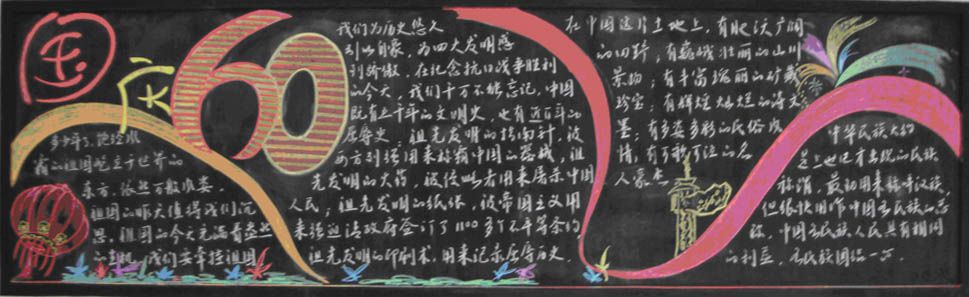 国
庆
60
霜的祖国屹立于世界的
东方，依然万般难姿
祖国的昨天值得我们沉
思，祖国的今天充满着
的生机，我们要掌握祖国
我们为历史悠久
引以自豪，为四大发明感
到骄傲，在纪念抗日战争胜利
的今天，我们千万不能忘记，中国
既有五千年的文明史，也有近百年的
屈辱史，祖先发明的指南针，被
西方列强用来掠夺中国的器械，祖
先发明的火药，被侵略者用来屠杀中国
人民；祖先发明的纸张，被帝国主义用
来强迫清政府签订了1100多个不平等条约
祖先发明的印刷术，用来记录屈辱历史。
在中国这片土地上，有肥沃广阔
的田野；有巍峨壮丽的山川
景物；有丰富瑰丽的矿藏
珍宝；有辉煌灿烂的诗文
墨；有多姿多彩的民俗风
情，有可歌可泣的名
人豪杰
中华民族大约
是上世纪才出现的民族
称谓，最初用来称呼汉族，
但很快用作中国各民族的总
称，中国各民族人民具有相同
的利益，各民族团结一心。